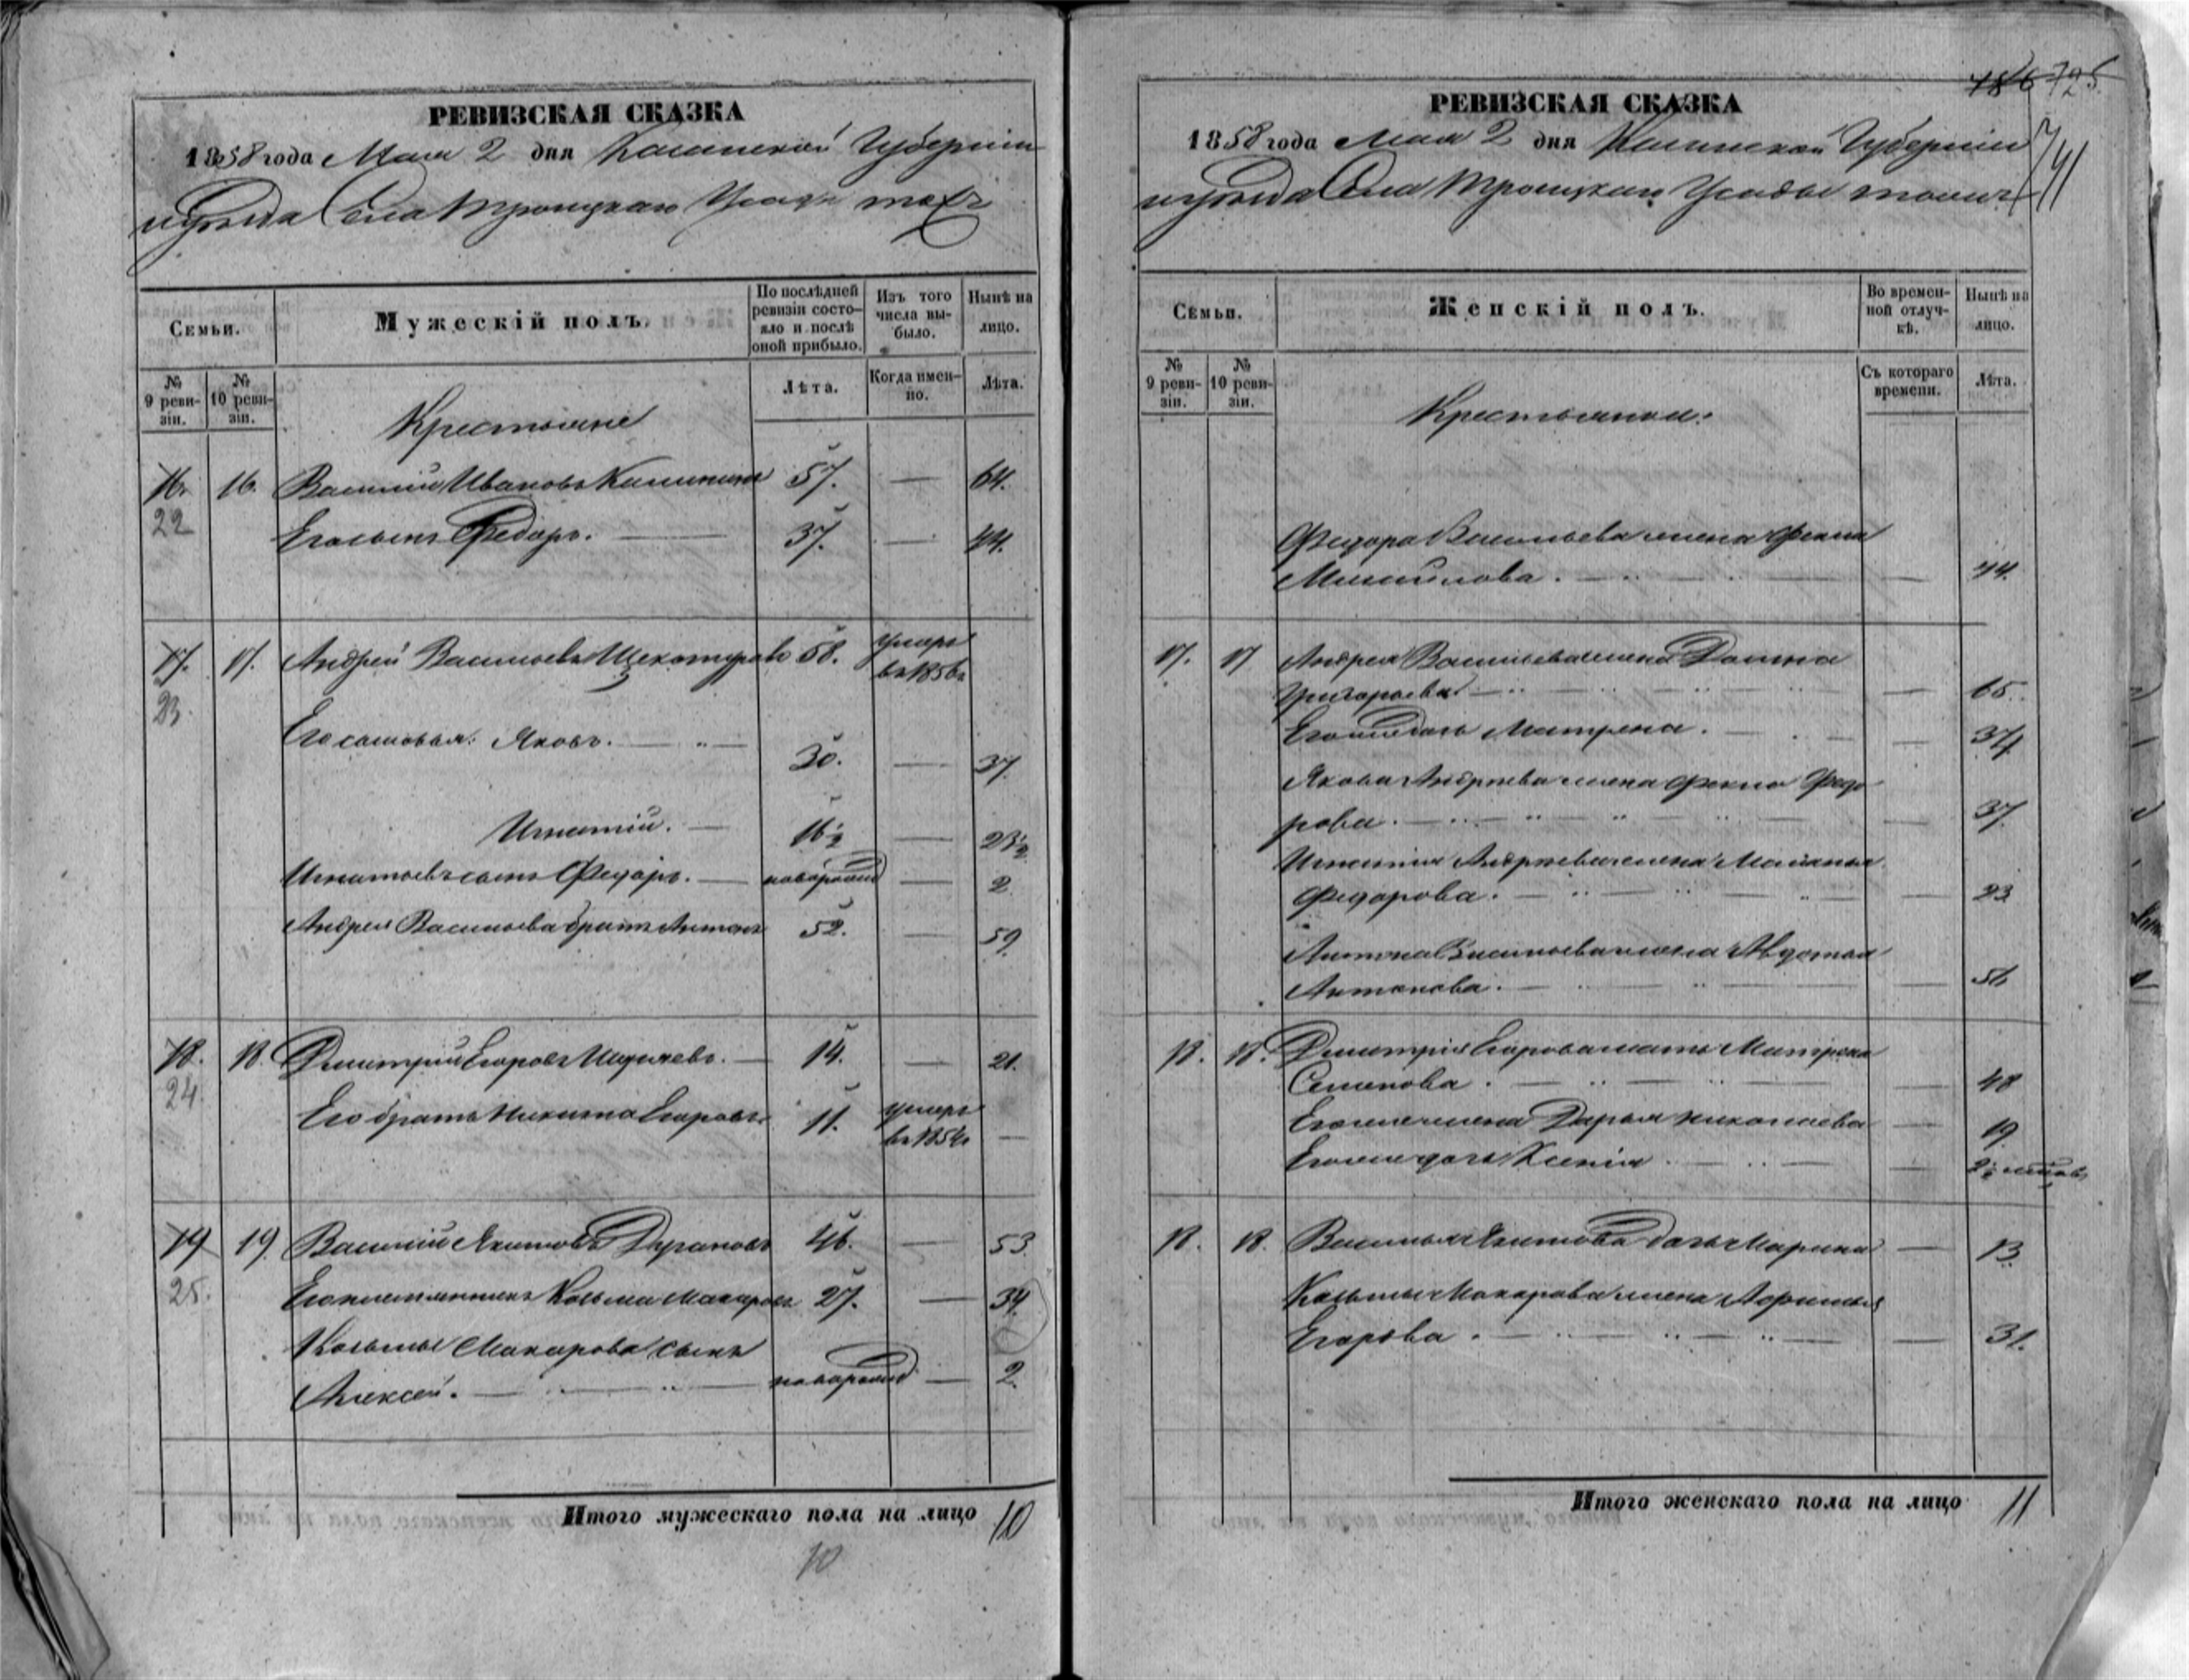 РЕВИЗСКАЯ СКАЗКА
1858 года Мая 2 дня Казанской Губерніи
уѣзда Села Троицкаго
Семьи.
Мужескій полъ.
По послѣдней ревизіи состояло и послѣ оной прибыло.
Изъ того числа выбыло.
Нынѣ на лицо.
№ 9 ревизіи.
№ 10 ревизіи.
Лѣта.
Когда именно.
Лѣта.
Крестьяне
16. 16. Василий Ивановъ 57. — 64.
22 Его сынъ Федоръ. — 37. — 44.
17. 17. Андрей Васильевъ Щекотуровъ 58. умеръ
въ 1856 г
23.
Его сыновья: Яковъ. — 30. — 37.
Игнатій. — 16½ — 23½
Игнатьевъ сынъ Федоръ. — новорожд — 2.
Андрея Васильева братъ Антонъ 52. — 59.
18. 18. Дмитрий Егоровъ — 14. — 21.
24. Его братъ Никита Егоровъ 11. умеръ
въ 1854 г —
19 19. Василий Якимовъ 46. — 53.
25. Его племянникъ Козьма Макаровъ 27. — 34.
Козьмы Макарова сынъ
Алексей. — новорожд — 2.
Итого мужескаго пола на лицо 10
10
186 725.
РЕВИЗСКАЯ СКАЗКА
1858 года Мая 2 дня Казанской Губерніи
уѣзда Села Троицкаго
Семьи.
Женскій полъ.
Во временной отлучкѣ.
Нынѣ на лицо.
№ 9 ревизіи.
№ 10 ревизіи.
Съ котораго времени.
Лѣта.
Крестьянки:
Федора Васильева жена Фекла
Михайлова. — 44.
17. 17 Андрея Васильева жена
Григорьева — 65.
Его дочь Матрена. — 34
Якова Андреева жена Фекла Федо
рова. — 37.
Игнатія Андреева жена Маланья
Федорова. — 23
Антона Васильева жена Авдотья
Антонова. — 56
18. 18. Дмитрія Егорова мать Матрена
Семенова. — 48
Его же жена Дарья Николаева — 19
Его же дочь Ксенія —
18. 18. Василья Якимова дочь Марина — 13.
Козьмы Макарова жена
Егорова. — 31.
Итого женскаго пола на лицо 11